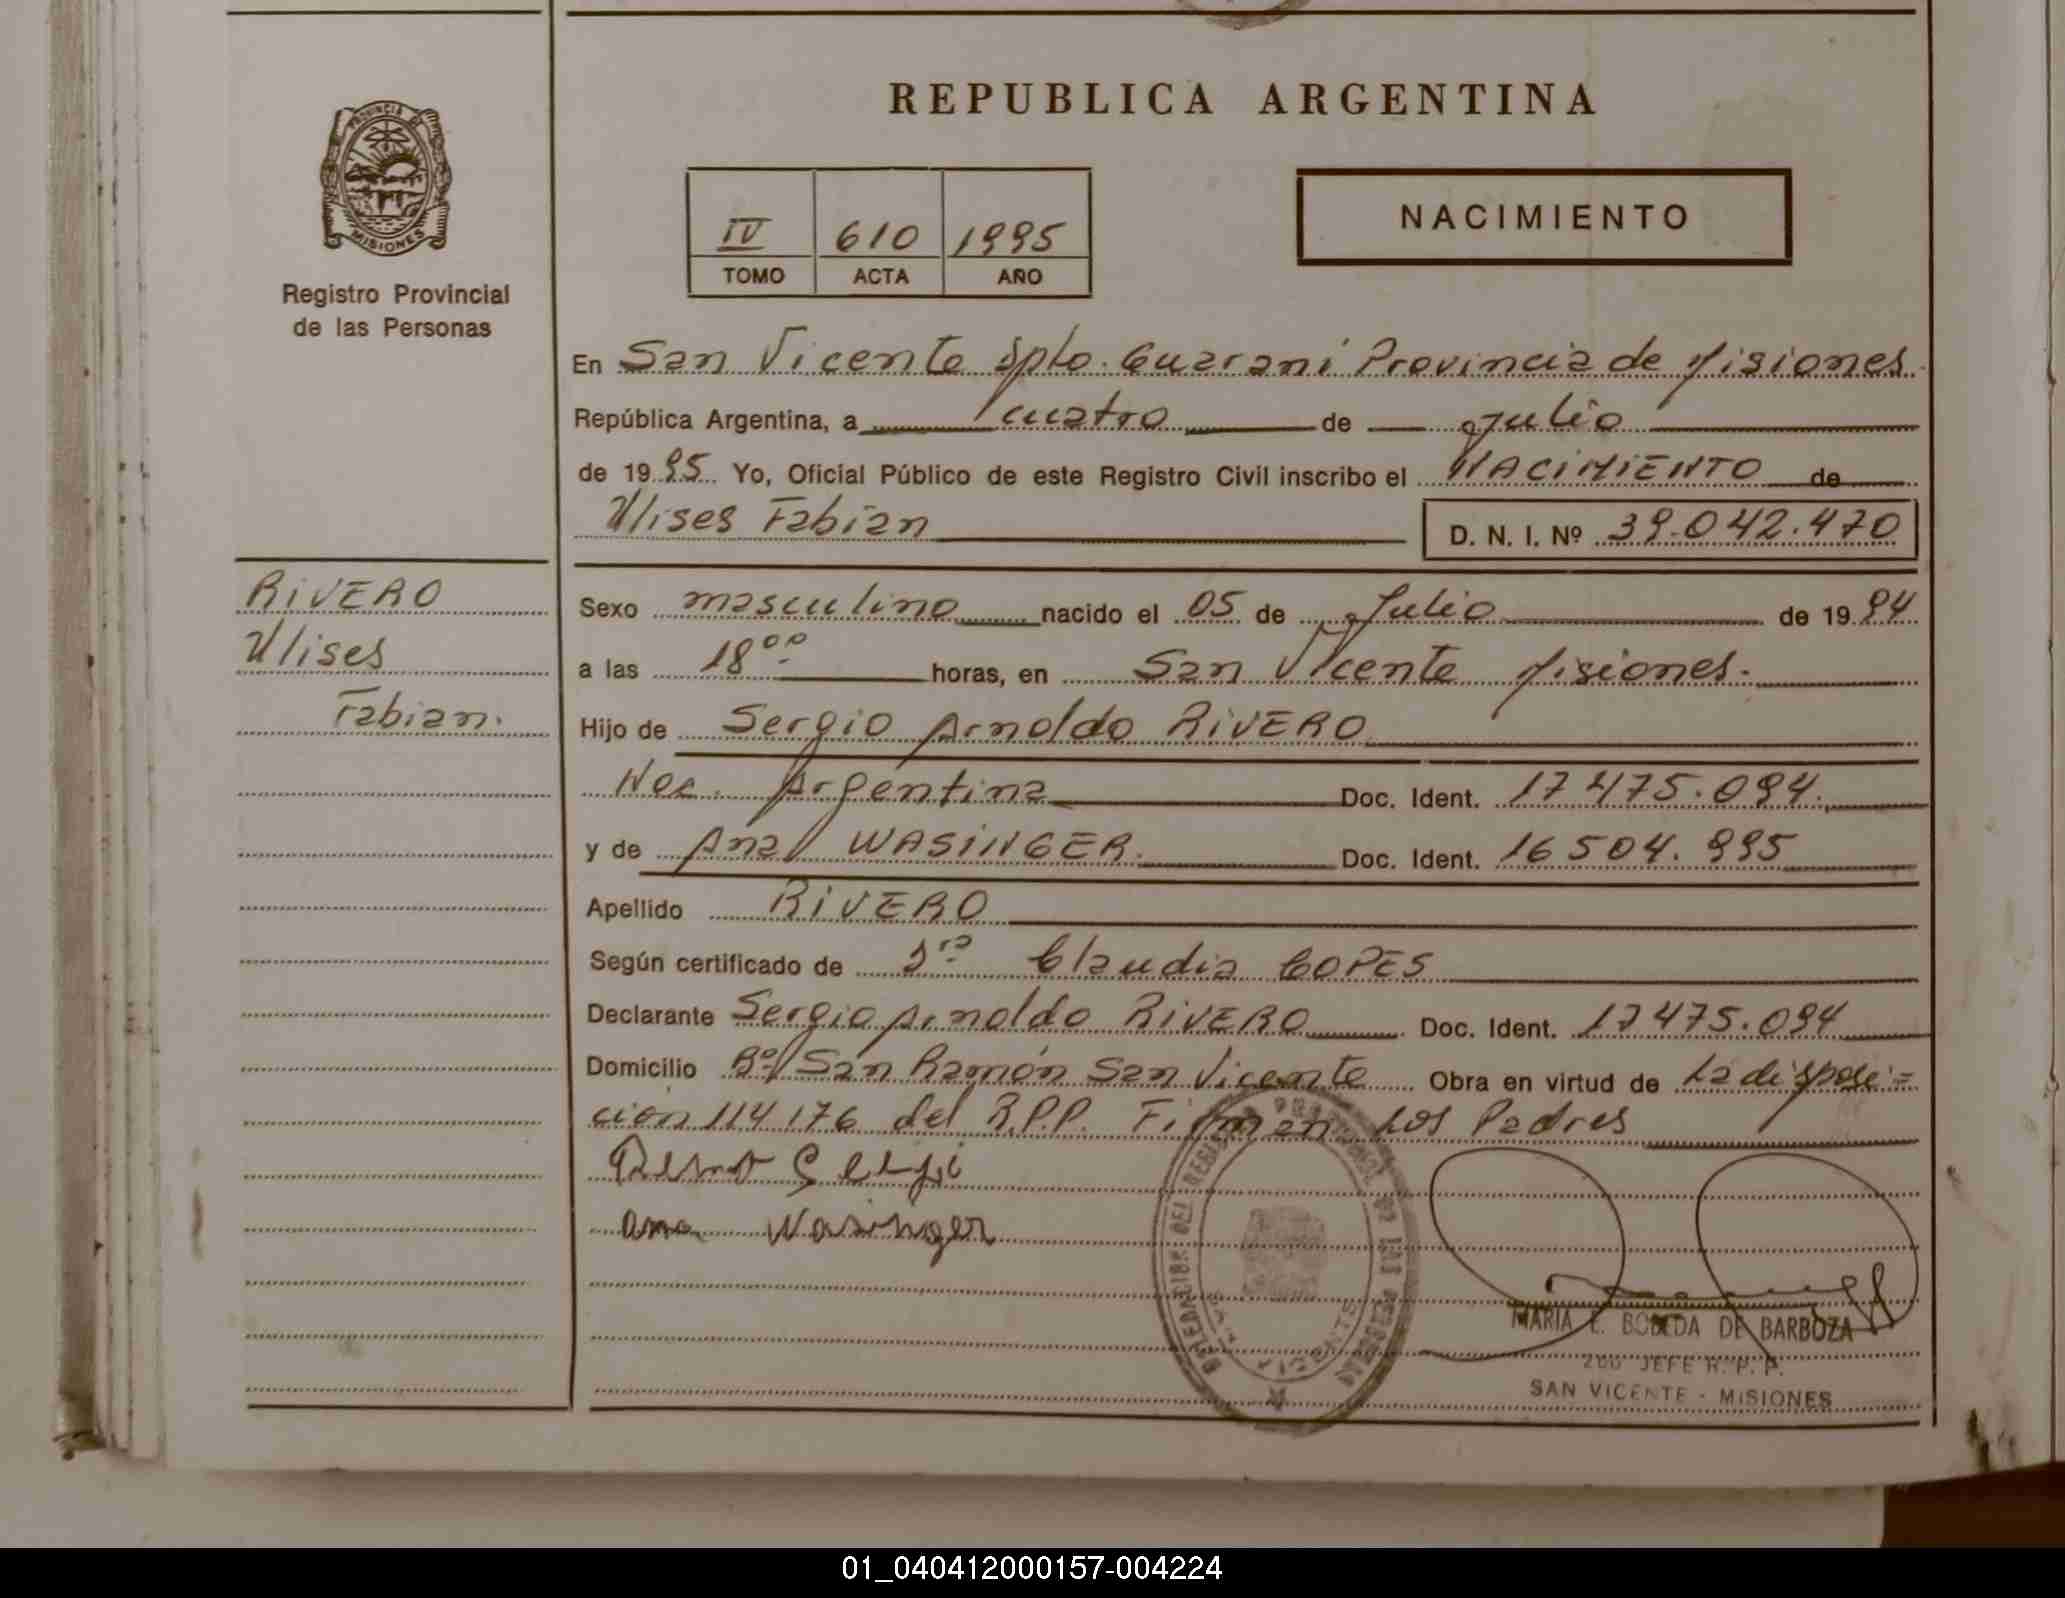 REPUBLICA ARGENTINA
PROVINCIA DE
MISIONES
Registro Provincial
de las Personas
IV 610 1995
TOMO ACTA AÑO
NACIMIENTO
En San Vicente Dpto. Guaraní Provincia de Misiones
República Argentina, a cuatro de Julio
de 1995 Yo, Oficial Público de este Registro Civil inscribo el NACIMIENTO de
Ulises Fabian D. N. I. Nº 39.042.470
RIVERO
Ulises
Fabian.
Sexo masculino nacido el 05 de Julio de 1994
a las 18ºº horas, en San Vicente Misiones.
Hijo de Sergio Arnoldo RIVERO
Nac. Argentina Doc. Ident. 17475.094.
y de Ana WASINGER. Doc. Ident. 16504.995
Apellido RIVERO
Según certificado de Dra Claudia COPES
Declarante Sergio Arnoldo RIVERO Doc. Ident. 17475.094
Domicilio Bº San Ramón San Vicente Obra en virtud de La disposi=
ción 114 176 del R.P.P. Firman Los Padres
Ana Wasinger
SAN VICENTE
MARIA E. BOBEDA DE BARBOZA
2DO JEFE R. P. P.
SAN VICENTE - MISIONES
01_040412000157-004224